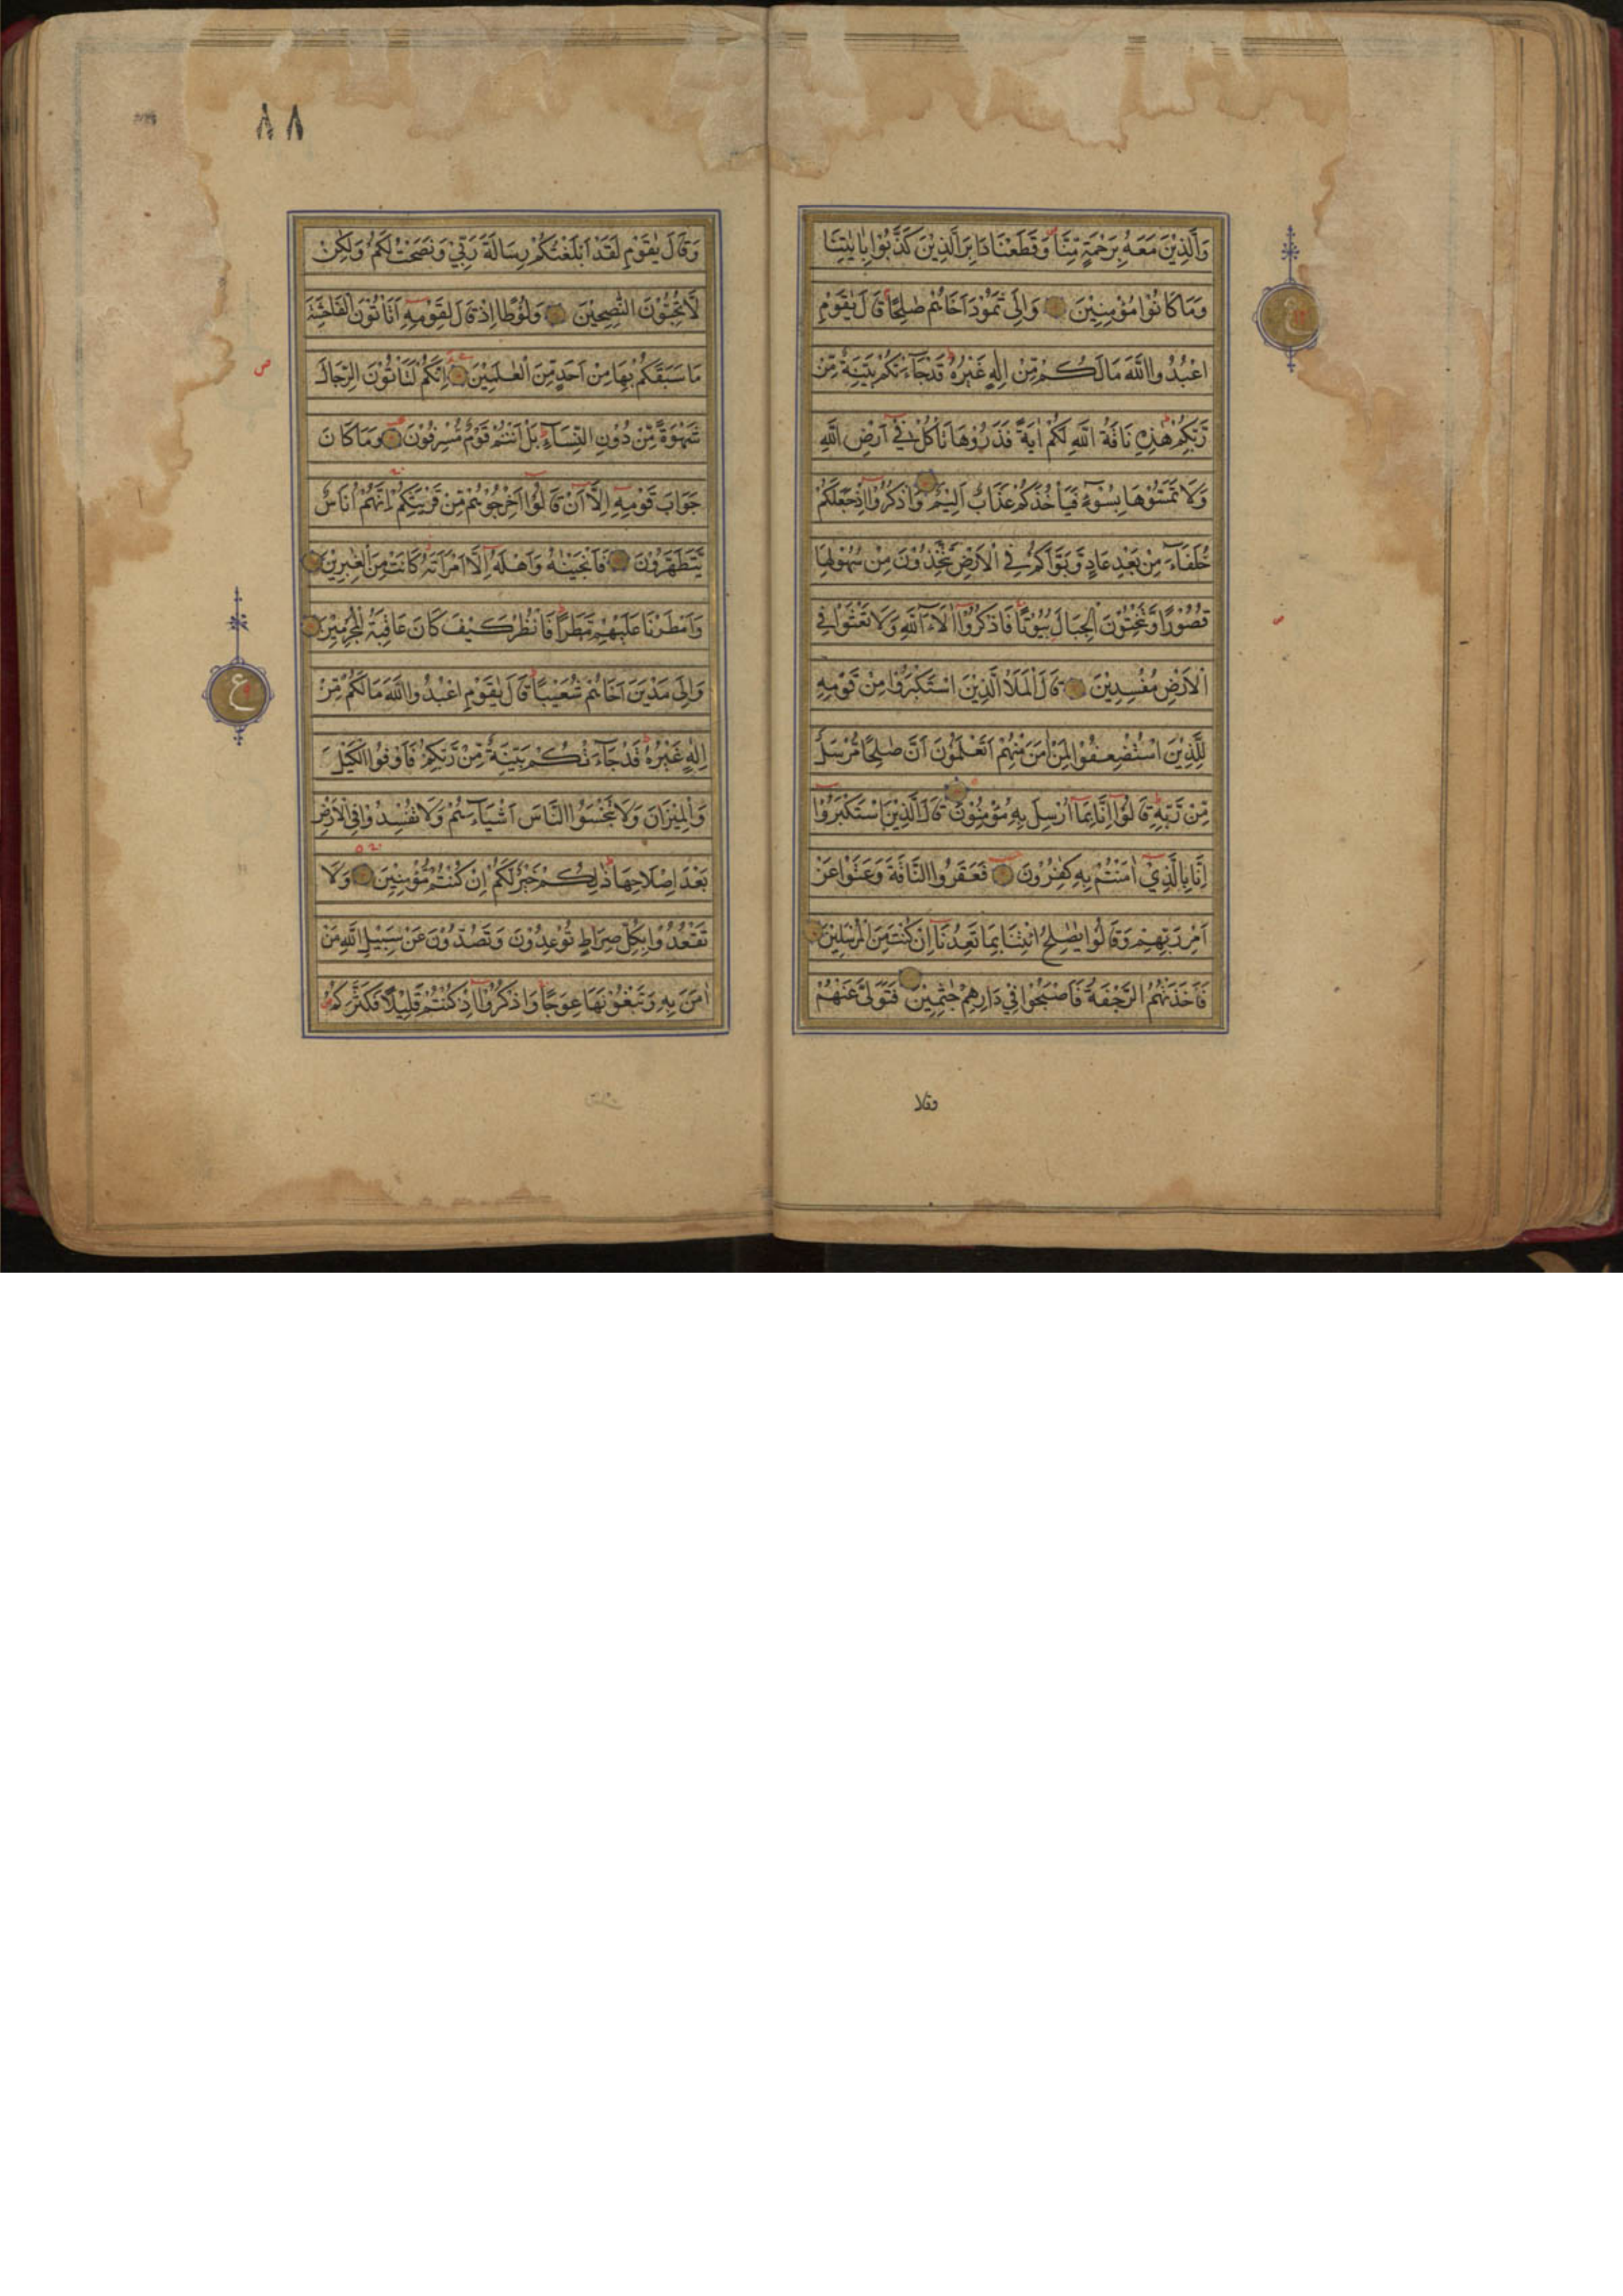 وَالَّذِيْنَ مَعَهٗ بِرَحْمَةٍ مِّنَّا وَقَطَعْنَا دَابِرَ الَّذِيْنَ كَذَّبُوْا بِاٰيٰتِنَا
وَمَا كَانُوْا مُؤْمِنِيْنَ وَاِلٰى ثَمُوْدَ اَخَاهُمْ صٰلِحًا قَالَ يٰقَوْمِ
اعْبُدُوا اللّٰهَ مَا لَكُمْ مِّنْ اِلٰهٍ غَيْرُهٗ قَدْ جَآءَتْكُمْ بَيِّنَةٌ مِّنْ
رَّبِّكُمْ هٰذِهٖ نَاقَةُ اللّٰهِ لَكُمْ اٰيَةً فَذَرُوْهَا تَاْكُلْ فِيْٓ اَرْضِ اللّٰهِ
وَلَا تَمَسُّوْهَا بِسُوْٓءٍ فَيَاْخُذَكُمْ عَذَابٌ اَلِيْمٌ وَاذْكُرُوْٓا اِذْ جَعَلَكُمْ
خُلَفَآءَ مِنْ بَعْدِ عَادٍ وَّبَوَّاَكُمْ فِي الْاَرْضِ تَتَّخِذُوْنَ مِنْ سُهُوْلِهَا
قُصُوْرًا وَّتَنْحِتُوْنَ الْجِبَالَ بُيُوْتًا فَاذْكُرُوْٓا اٰلَآءَ اللّٰهِ وَلَا تَعْثَوْا فِي
الْاَرْضِ مُفْسِدِيْنَ قَالَ الْمَلَاُ الَّذِيْنَ اسْتَكْبَرُوْا مِنْ قَوْمِهٖ
لِلَّذِيْنَ اسْتُضْعِفُوْا لِمَنْ اٰمَنَ مِنْهُمْ اَتَعْلَمُوْنَ اَنَّ صٰلِحًا مُّرْسَلٌ
مِّنْ رَّبِّهٖ قَالُوْٓا اِنَّا بِمَآ اُرْسِلَ بِهٖ مُؤْمِنُوْنَ قَالَ الَّذِيْنَ اسْتَكْبَرُوْٓا
اِنَّا بِالَّذِيْٓ اٰمَنْتُمْ بِهٖ كٰفِرُوْنَ فَعَقَرُوا النَّاقَةَ وَعَتَوْا عَنْ
اَمْرِ رَبِّهِمْ وَقَالُوْا يٰصٰلِحُ ائْتِنَا بِمَا تَعِدُنَآ اِنْ كُنْتَ مِنَ الْمُرْسَلِيْنَ
فَاَخَذَتْهُمُ الرَّجْفَةُ فَاَصْبَحُوْا فِيْ دَارِهِمْ جٰثِمِيْنَ فَتَوَلّٰى عَنْهُمْ
وقلا
ع
ص
٨٨
وَقَالَ يٰقَوْمِ لَقَدْ اَبْلَغْتُكُمْ رِسَالَةَ رَبِّيْ وَنَصَحْتُ لَكُمْ وَلٰكِنْ
لَّا تُحِبُّوْنَ النّٰصِحِيْنَ وَلُوْطًا اِذْ قَالَ لِقَوْمِهٖٓ اَتَاْتُوْنَ الْفَاحِشَةَ
مَا سَبَقَكُمْ بِهَا مِنْ اَحَدٍ مِّنَ الْعٰلَمِيْنَ اِنَّكُمْ لَتَاْتُوْنَ الرِّجَالَ
شَهْوَةً مِّنْ دُوْنِ النِّسَآءِ بَلْ اَنْتُمْ قَوْمٌ مُّسْرِفُوْنَ وَمَا كَانَ
جَوَابَ قَوْمِهٖٓ اِلَّآ اَنْ قَالُوْٓا اَخْرِجُوْهُمْ مِّنْ قَرْيَتِكُمْ اِنَّهُمْ اُنَاسٌ
يَّتَطَهَّرُوْنَ فَاَنْجَيْنٰهُ وَاَهْلَهٗٓ اِلَّا امْرَاَتَهٗ كَانَتْ مِنَ الْغٰبِرِيْنَ
وَاَمْطَرْنَا عَلَيْهِمْ مَّطَرًا فَانْظُرْ كَيْفَ كَانَ عَاقِبَةُ الْمُجْرِمِيْنَ
وَاِلٰى مَدْيَنَ اَخَاهُمْ شُعَيْبًا قَالَ يٰقَوْمِ اعْبُدُوا اللّٰهَ مَا لَكُمْ مِّنْ
اِلٰهٍ غَيْرُهٗ قَدْ جَآءَتْكُمْ بَيِّنَةٌ مِّنْ رَّبِّكُمْ فَاَوْفُوا الْكَيْلَ
وَالْمِيْزَانَ وَلَا تَبْخَسُوا النَّاسَ اَشْيَآءَهُمْ وَلَا تُفْسِدُوْا فِي الْاَرْضِ
بَعْدَ اِصْلَاحِهَا ذٰلِكُمْ خَيْرٌ لَّكُمْ اِنْ كُنْتُمْ مُّؤْمِنِيْنَ وَلَا
تَقْعُدُوْا بِكُلِّ صِرَاطٍ تُوْعِدُوْنَ وَتَصُدُّوْنَ عَنْ سَبِيْلِ اللّٰهِ مَنْ
اٰمَنَ بِهٖ وَتَبْغُوْنَهَا عِوَجًا وَاذْكُرُوْٓا اِذْ كُنْتُمْ قَلِيْلًا فَكَثَّرَكُمْ
ص
ع